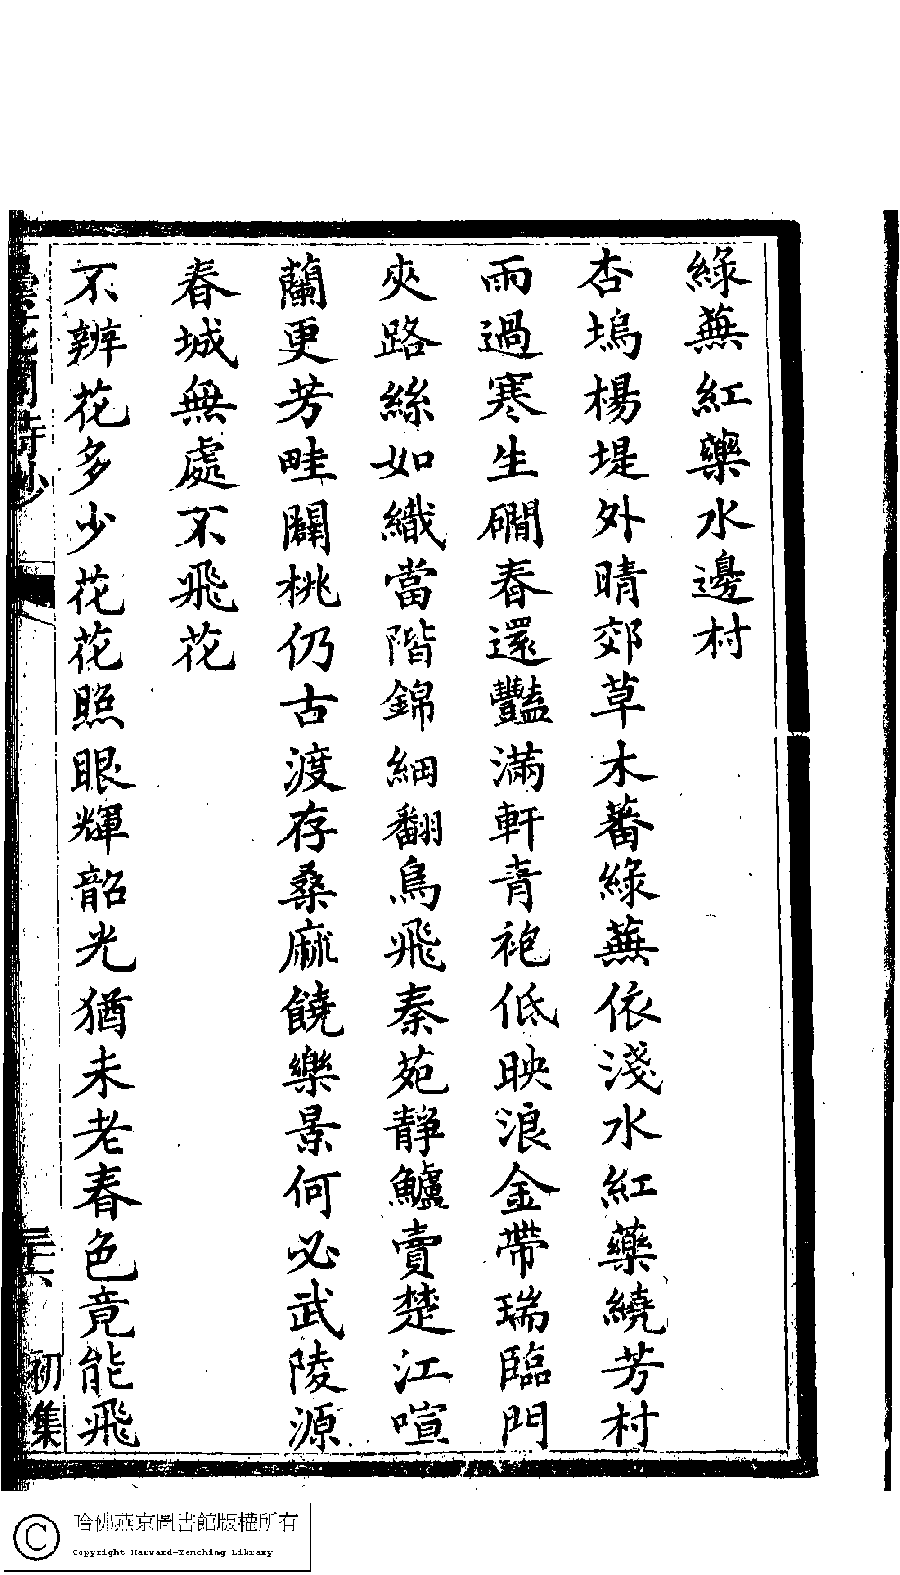 綠蕪紅藥水邊村
杏塢楊堤外晴郊草木蕃綠蕪依淺水紅藥繞芳村
雨過寒生磵春還豔滿軒青袍低映浪金帶瑞臨門
夾路絲如織當階錦細翻鳥飛秦苑靜鱸賣楚江喧
蘭更芳畦闢桃仍古渡存桑麻饒樂景何必武陵源
春城無處不飛花
不辨花多少花花照眼輝韶光猶未老春色竟能飛
詩鈔
三十六
初集
哈佛燕京圖書館版權所有
Copyright Harvard-Yenching Library